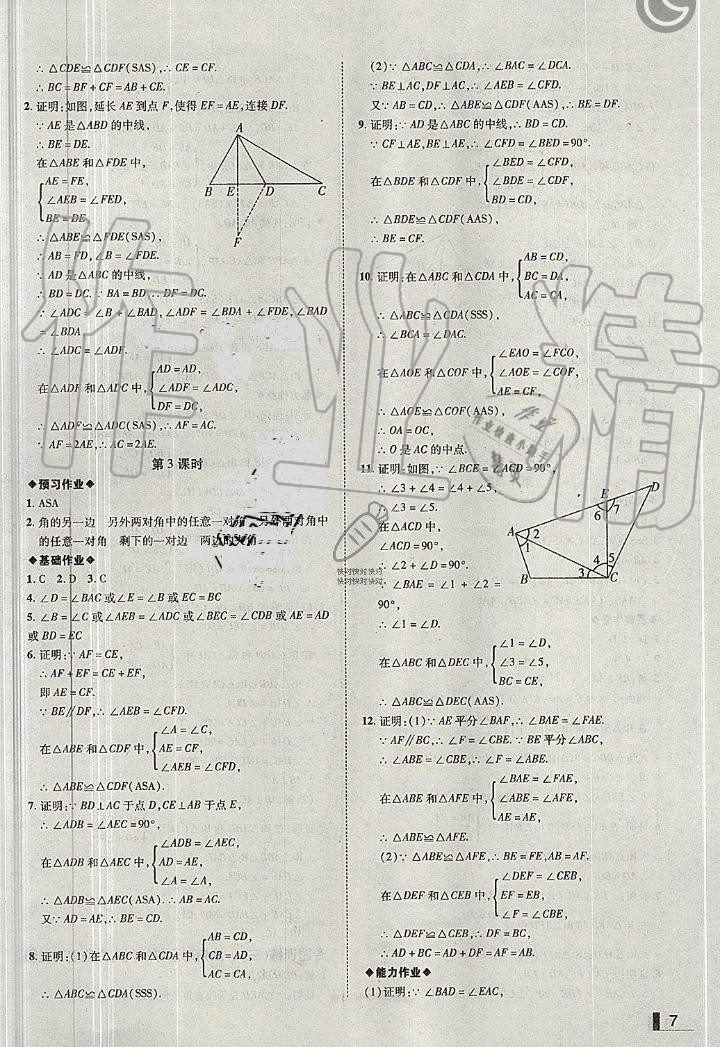 ∴△CDE≌△CDF(SAS),∴CE=CF.
∴BC=BF+CF=AB+CE.
2. 证明:如图,延长AE到点F,使得EF=AE,连接DF.
∵AE是△ABD的中线,
∴BE=DE.
在△ABE和△FDE中,
AE=FE,
∠AEB=∠FED,
BE=DE,
A
B E D C
F
∴△ABE≌△FDE(SAS),
∴AB=FD,∠B=∠FDE.
∵AD是△ABC的中线,
∴BD=DC.∵BA=BD
DF=DC.
∵∠ADC=∠B+∠BAD,∠ADF=∠BDA+∠FDE,∠BAD
=∠BDA,
∴∠ADF=∠ADC.
在△ADF和△ADC中,
AD=AD,
∠ADF=∠ADC,
DF=DC,
∴△ADF≌△ADC(SAS),∴AF=AC.
∵AF=2AE,∴AC=2AE.
第3课时
◆预习作业◆
1. ASA
2. 角的另一边 另外两对角中的任意一对角 另外两对角中
的任意一对角 剩下的一对边
◆基础作业◆
1. C 2. D 3. C
4. ∠D=∠BAC或∠E=∠B或EC=BC
5. ∠B=∠C或∠AEB=∠ADC或∠BEC=∠CDB或AE=AD
或BD=EC
6. 证明:∵AF=CE,
∴AF+EF=CE+EF,
即AE=CF.
∵BE∥DF,∴∠AEB=∠CFD.
在△ABE和△CDF中,
∠A=∠C,
AE=CF,
∠AEB=∠CFD,
∴△ABE≌△CDF(ASA).
7. 证明:∵BD⊥AC于点D,CE⊥AB于点E,
∴∠ADB=∠AEC=90°,
在△ADB和△AEC中,
∠ADB=∠AEC,
AD=AE,
∠A=∠A,
∴△ADB≌△AEC(ASA).∴AB=AC.
又∵AD=AE,∴BE=CD.
8. 证明:(1)在△ABC和△CDA中,
AB=CD,
CB=AD,
AC=CA,
∴△ABC≌△CDA(SSS).
(2)∵△ABC≌△CDA,∴∠BAC=∠DCA.
∵BE⊥AC,DF⊥AC,∴∠AEB=∠CFD.
又∵AB=CD,∴△ABE≌△CDF(AAS),∴BE=DF.
9. 证明:∵AD是△ABC的中线,∴BD=CD.
∵CF⊥AE,BE⊥AE,∴∠CFD=∠BED=90°.
在△BDE和△CDF中,
∠BED=∠CFD,
∠BDE=∠CDF,
BD=CD,
∴△BDE≌△CDF(AAS),
∴BE=CF.
10. 证明:在△ABC和△CDA中,
AB=CD,
BC=DA,
AC=CA,
∴△ABC≌△CDA(SSS),
∴∠BCA=∠DAC.
在△AOE和△COF中,
∠EAO=∠FCO,
∠AOE=∠COF,
AE=CF,
∴△AOE≌△COF(AAS),
∴OA=OC,
∴O是AC的中点.
11. 证明:如图,∵∠BCE=∠ACD=90°,
∴∠3+∠4=∠4+∠5,
∴∠3=∠5.
在△ACD中,
∠ACD=90°,
∴∠2+∠D=90°.
∵∠BAE=∠1+∠2=
90°,
∴∠1=∠D.
D
E
6 7
A 2
1
4 5
3
B C
在△ABC和△DEC中,
∠1=∠D,
∠3=∠5,
BC=CE,
∴△ABC≌△DEC(AAS).
12. 证明:(1)∵AE平分∠BAF,∴∠BAE=∠FAE.
∵AF∥BC,∴∠F=∠CBE.∵BE平分∠ABC,
∴∠ABE=∠CBE.∴∠F=∠ABE.
在△ABE和△AFE中,
∠BAE=∠FAE,
∠ABE=∠F,
AE=AE,
∴△ABE≌△AFE.
(2)∵△ABE≌△AFE,∴BE=FE,AB=AF.
在△DEF和△CEB中,
∠DEF=∠CEB,
EF=EB,
∠F=∠CBE,
∴△DEF≌△CEB,∴DF=BC.
∴AD+BC=AD+DF=AF=AB.
◆能力作业◆
(1)证明:∵∠BAD=∠EAC,
7
作业精
快对快对快对
快对快对快对